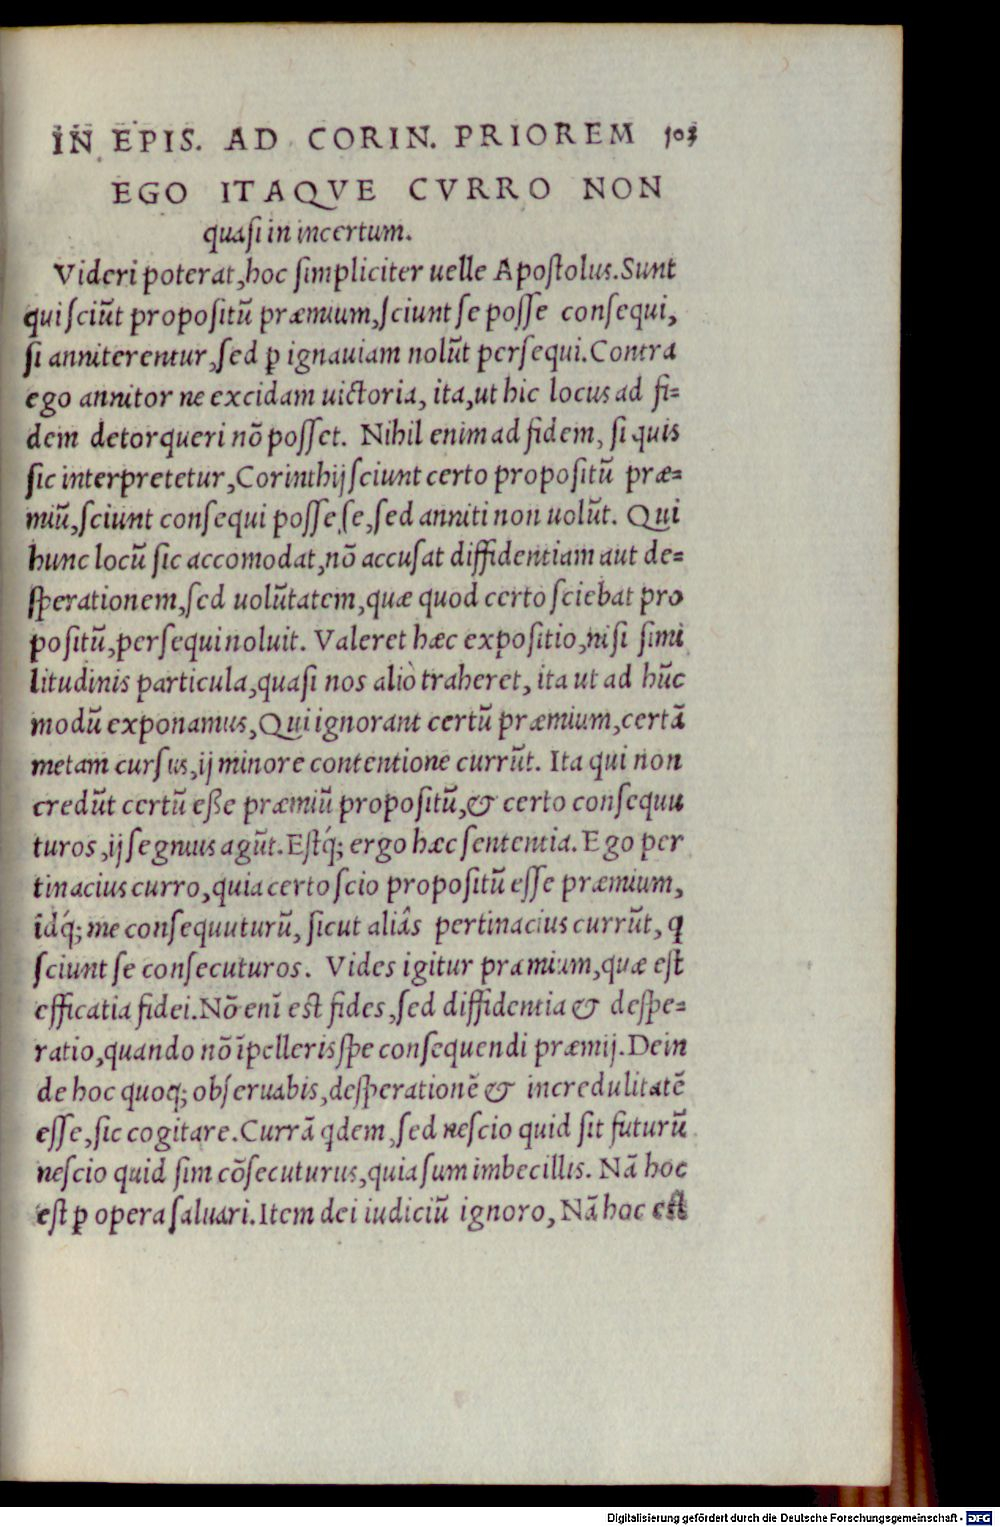 IN EPIS. AD CORIN. PRIOREM 103
EGO ITAQVE CVRRO NON
quaſi in incertum.
Videri poterat, hoc ſimpliciter uelle Apoſtolus. Sunt
qui ſciũt propoſitũ præmium, ſciunt ſe poſſe conſequi,
ſi anniterentur, ſed ꝑ ignauiam nolũt perſequi. Contra
ego annitor ne excidam uictoria, ita, ut hic locus ad fi=
dem detorqueri nõ poſſet. Nihil enim ad fidem, ſi quis
ſic interpretetur, Corinthij ſciunt certo propoſitũ præ=
miũ, ſciunt conſequi poſſe ſe, ſed anniti non uolũt. Qui
hunc locũ ſic accomodat, nõ accuſat diffidentiam aut de=
ſperationem, ſed uolũtatem, quæ quod certo ſciebat pro
poſitũ, perſequi noluit. Valeret hæc expoſitio, niſi ſimi
litudinis particula, quaſi nos aliò traheret, ita ut ad hũc
modũ exponamus, Qui ignorant certũ præmium, certã
metam curſus, ij minore contentione currũt. Ita qui non
credũt certũ eße præmiũ propoſitũ, & certo conſequu
turos, ij ſegnius agũt. Eſtq́; ergo hæc ſententia. Ego per
tinacius curro, quia certo ſcio propoſitũ eſſe præmium,
idq́; me conſequuturũ, ſicut aliâs pertinacius currũt, ꝗ
ſciunt ſe conſecuturos. Vides igitur præmium, quæ eſt
efficatia fidei. Nõ enĩ eſt fides, ſed diffidentia & deſpe=
ratio, quando nõ ĩpelleris ſpe conſequendi præmij. Dein
de hoc quoq; obſeruabis, deſperationẽ & incredulitatẽ
eſſe, ſic cogitare. Currã qdem, ſed neſcio quid ſit futurũ
neſcio quid ſim cõſecuturus, quia ſum imbecillis. Nã hoc
eſt ꝑ opera ſaluari. Item dei iudiciũ ignoro, Nã hoc eſt
Digitalisierung gefördert durch die Deutsche Forschungsgemeinschaft - DFG